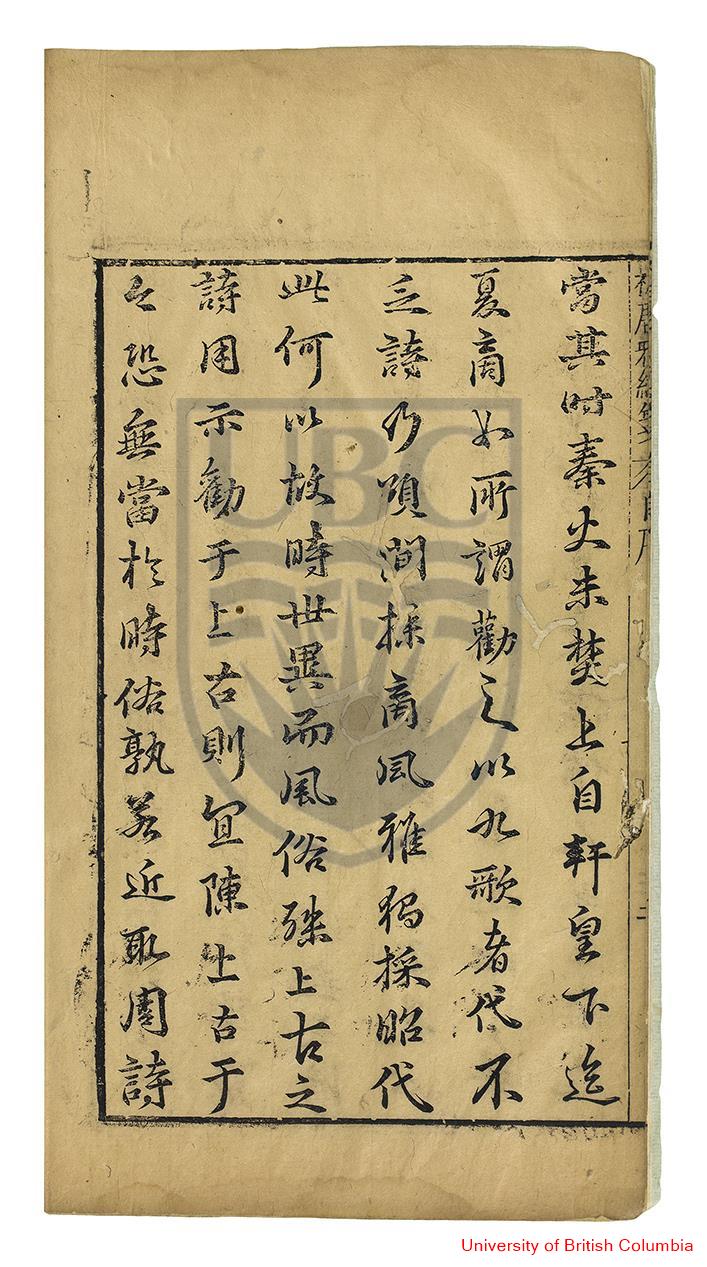 當其时秦火未焚上自軒皇下迄
夏商如所謂勸之以九歌者代不
乏詩乃頌間採商風雅獨採昭代
此何以故時世異而風俗殊上古之
詩用示勸于上古則宜陳上古于
今恐無當於時俗孰若近取周詩
UBC
University of British Columbia